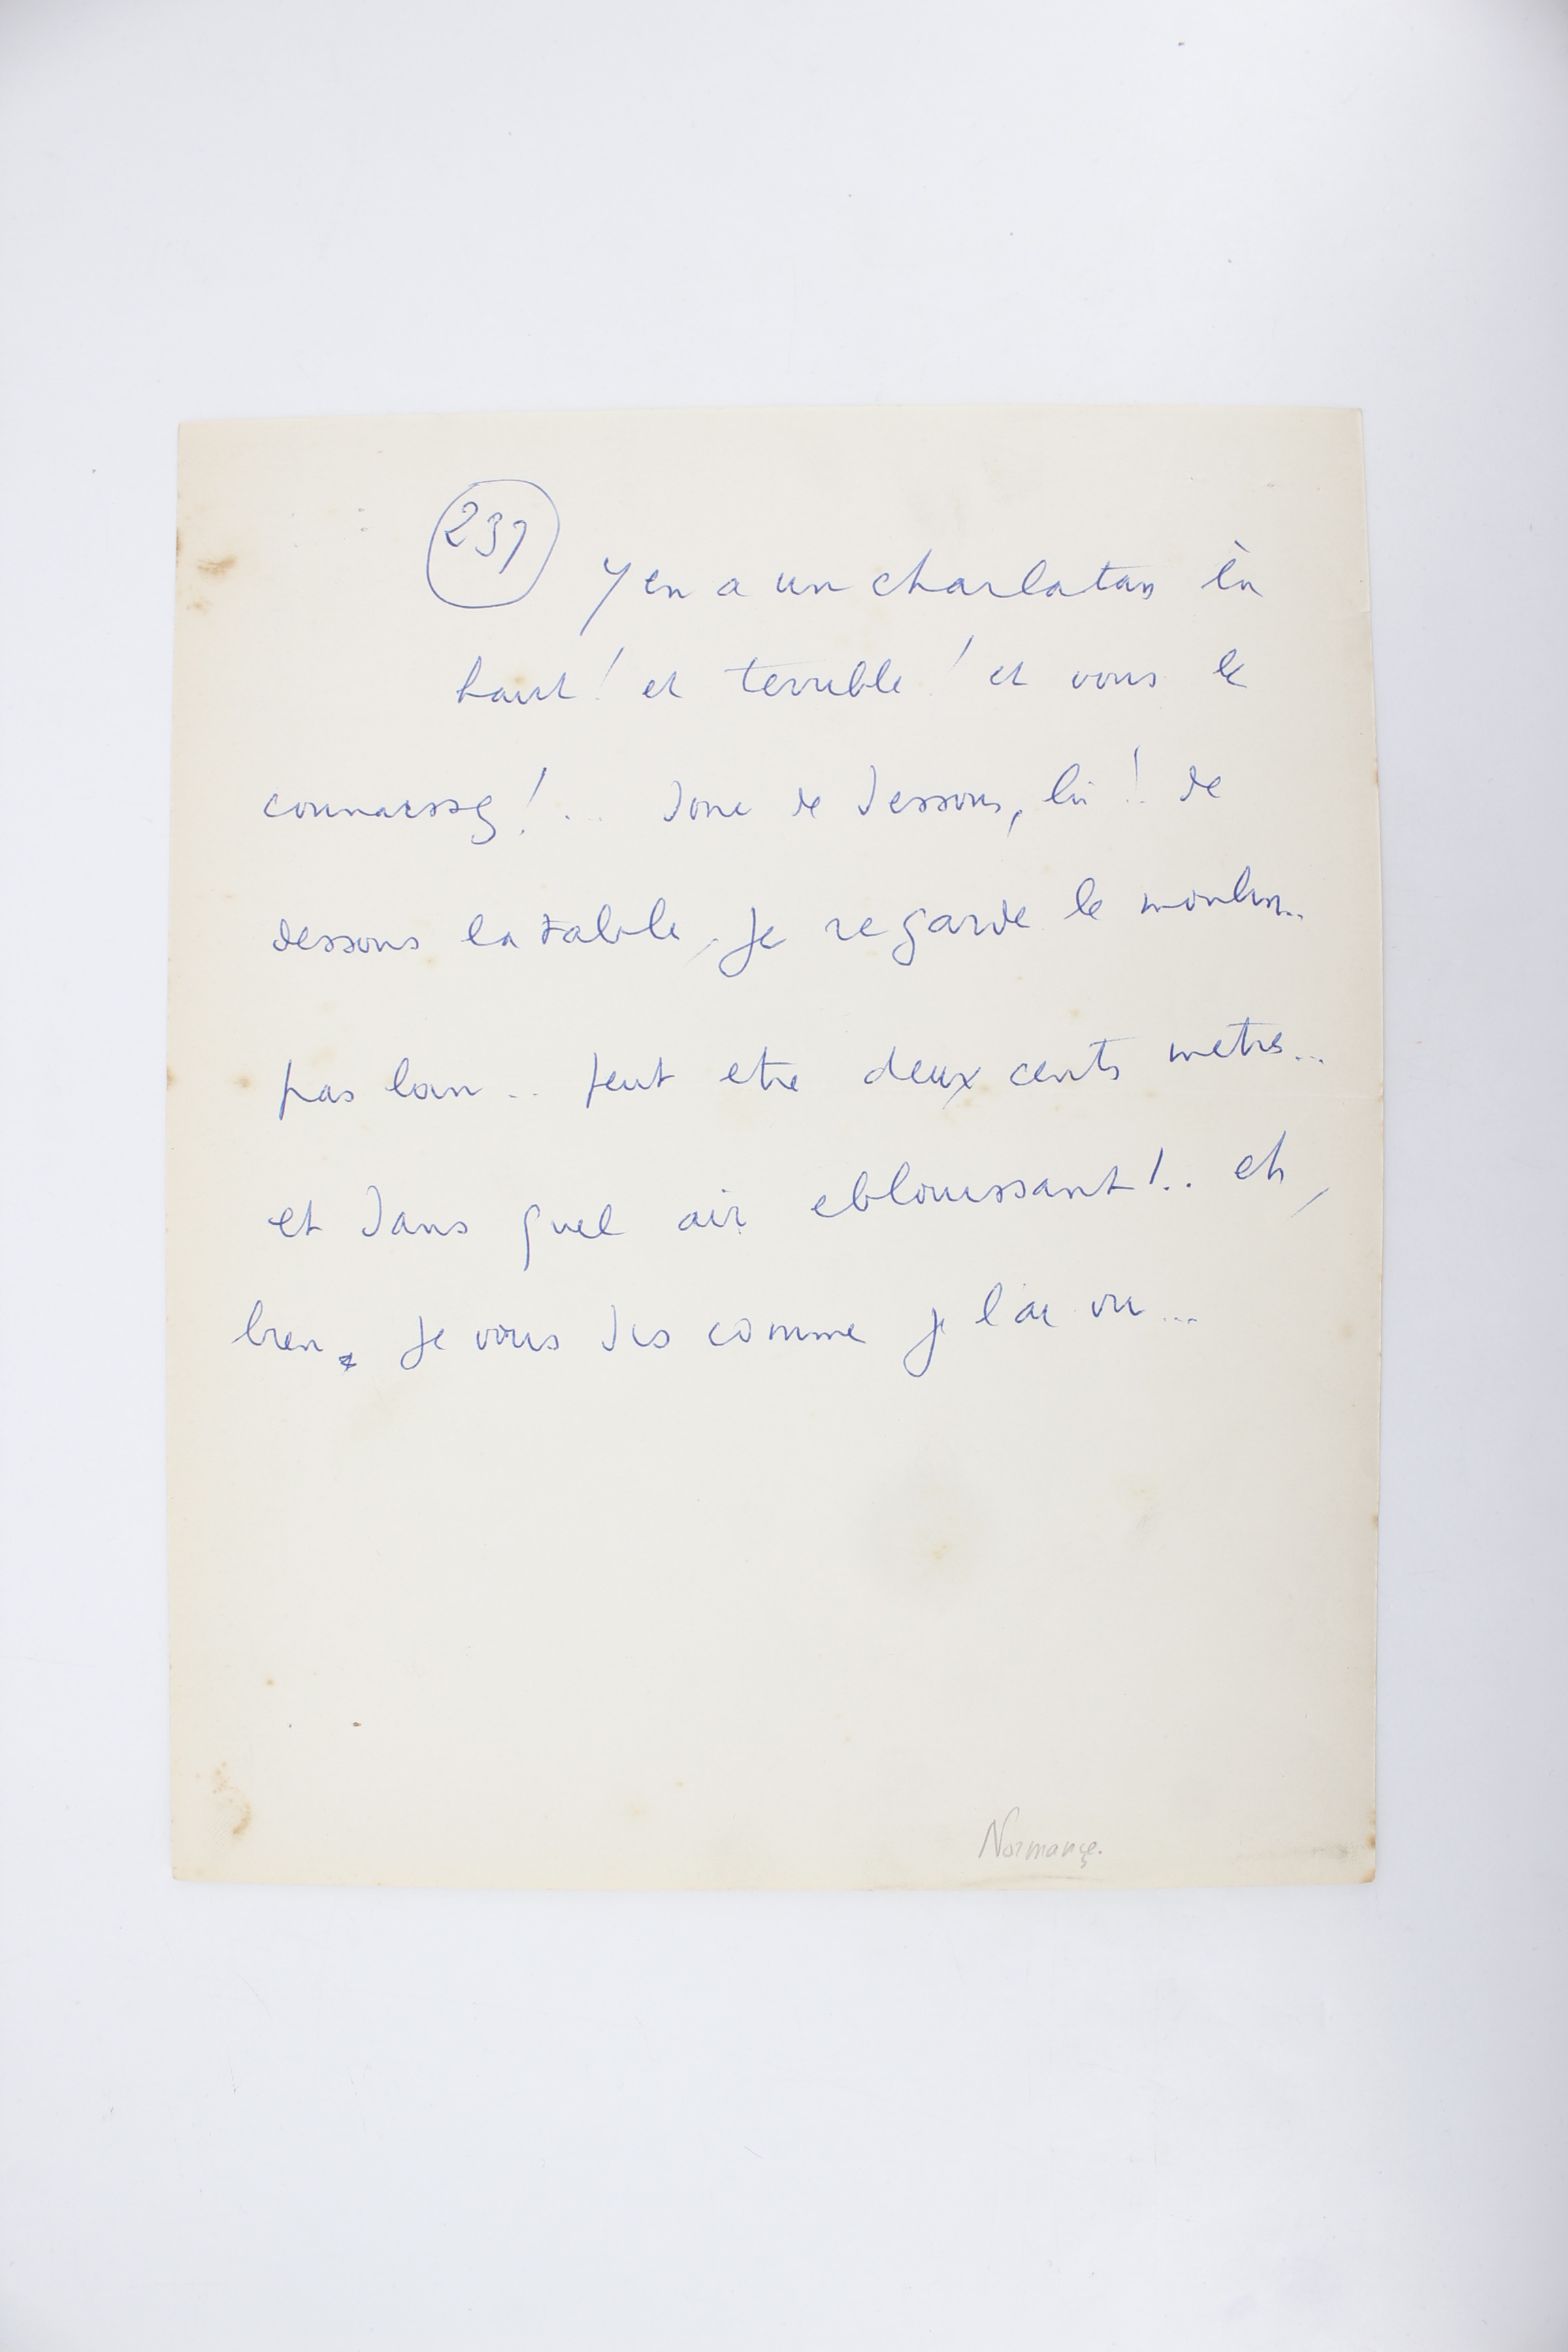 237
Y en a un charlatan là
haut ! et terrible ! et vous le
connaissez !... donc de dessous, là ! de
dessous la table, je regarde le moulin..
pas loin .. peut etre deux cents metres...
et dans quel air eblouissant !.. eh,
bien, je vous dis comme je l'ai vu...
Normance.